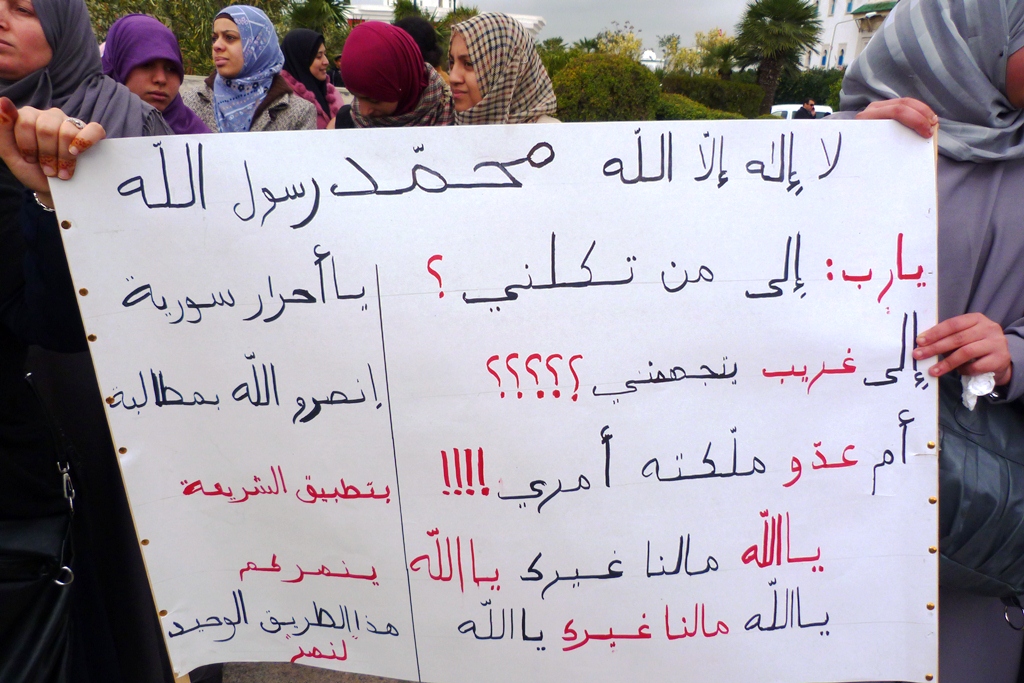 لا إله إلاّ اللّه محمّد رسول اللّه
يارب: إلى من تكلني ؟
إلى غريب يتجهمني ؟؟؟؟؟
أم عدّو ملّكته أمري !!!!
يااللّه مالنا غيرك يااللّه
يااللّه مالنا غيرك يااللّه
يا أحرار سورية
إنصرو اللّه بمطالبة
بتطبيق الشريعة
ينصركم
هذا الطريق الوحيد
لنصر